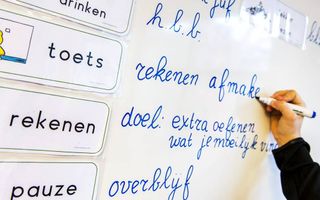 drinken
toets
rekenen
pauze
h.b.b.
rekenen afmake
doel: extra oefenen
wat je moeilijk vin
overblijf